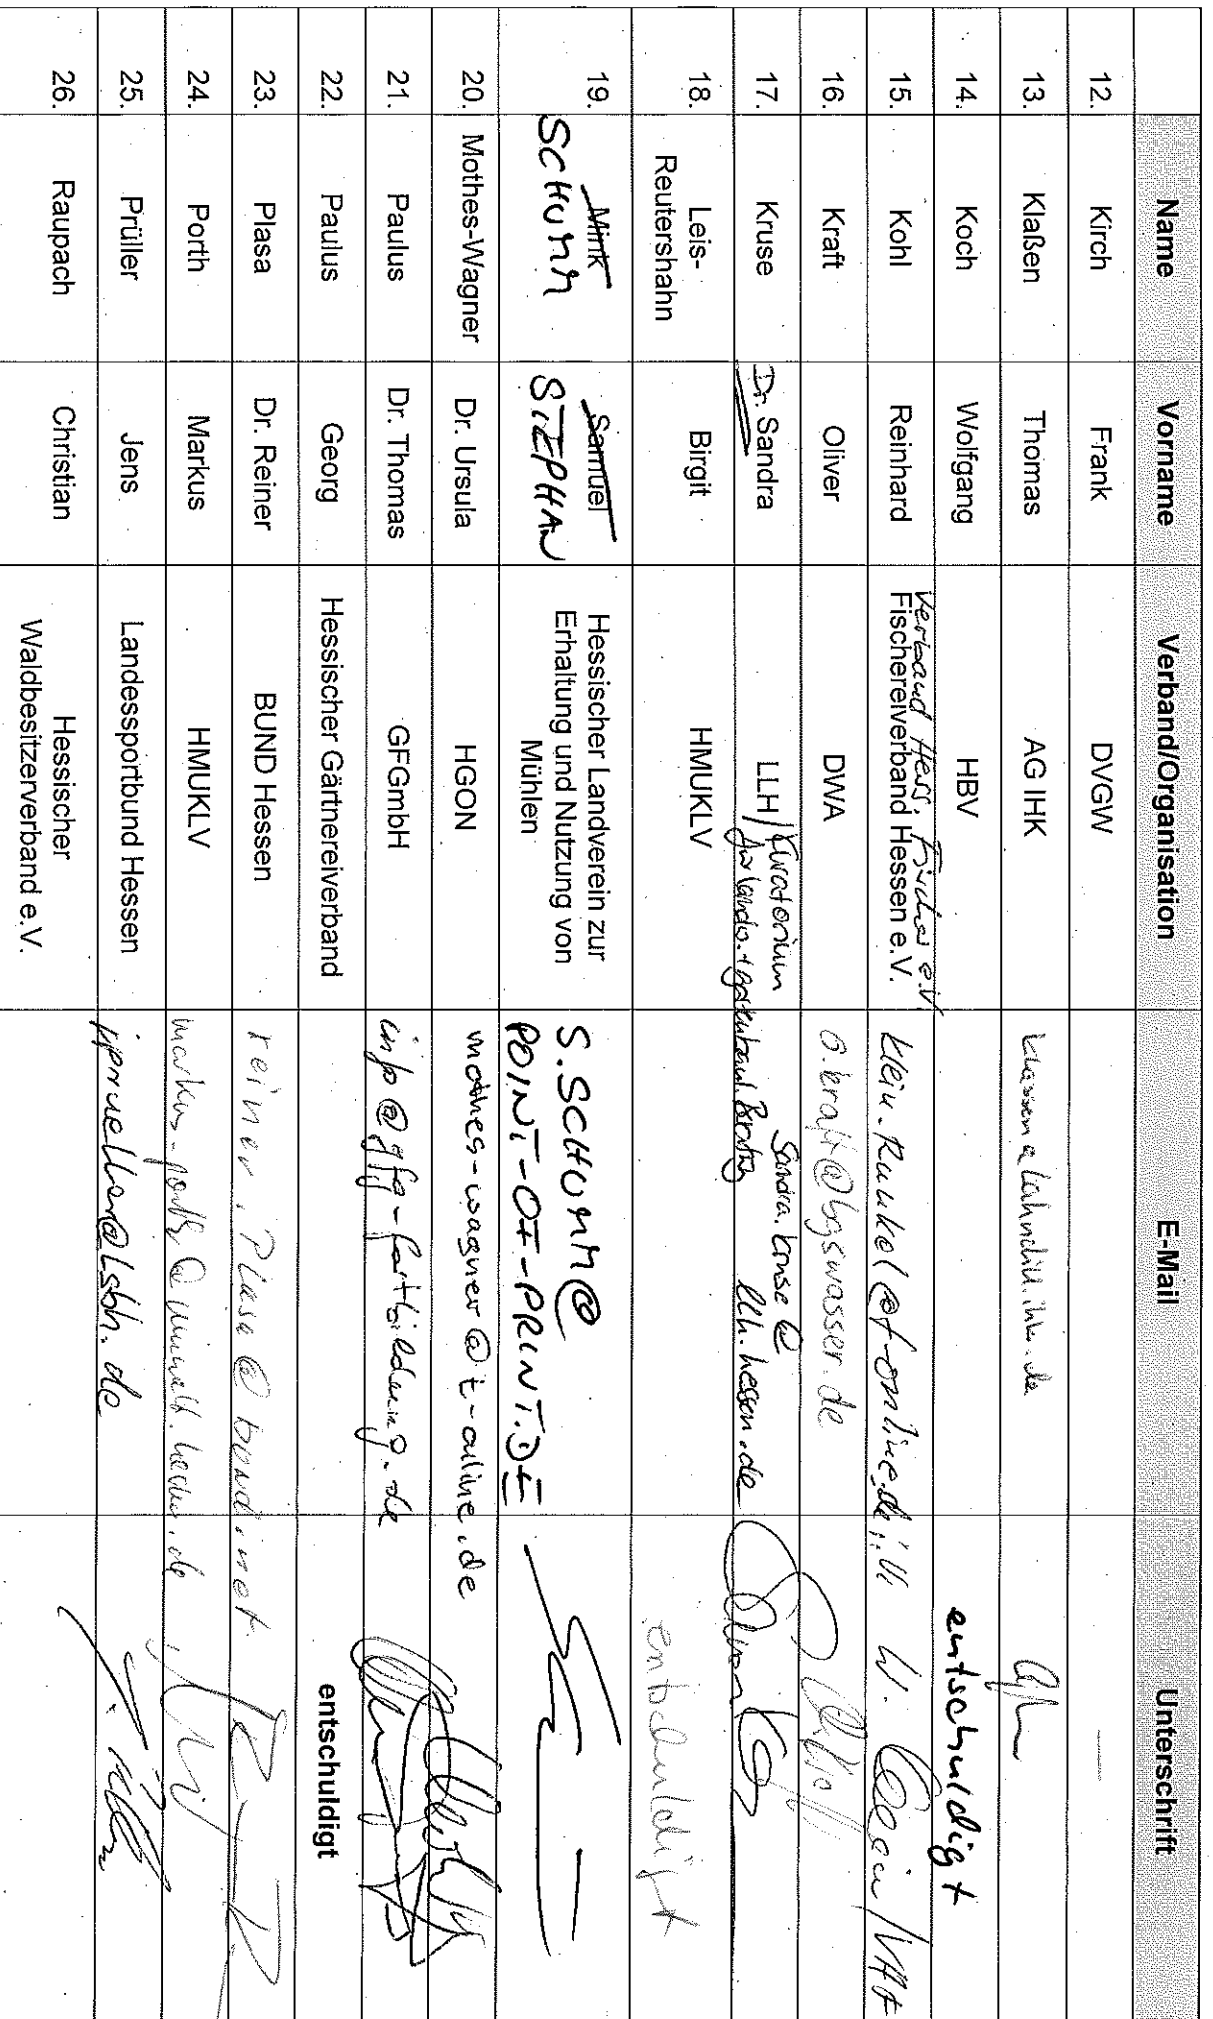 Name Vorname Verband/Organisation E-Mail Unterschrift
12. Kirch Frank DVGW —
13. Klaßen Thomas AG IHK
14. Koch Wolfgang HBV entschuldigt
15. Kohl Reinhard Verband Hess. Fischer e.V.
Fischereiverband Hessen e.V. klein.runkel@t-online.de
16. Kraft Oliver DWA o.kraft@bgswasser.de
17. Kruse Dr. Sandra LLH / Kuratorium
Sandra.kruse@
llh.hessen.de
18. Leis-
Reutershahn Birgit HMUKLV entschuldigt
19. Mink Samuel Hessischer Landverein zur
Erhaltung und Nutzung von
Mühlen
SCHUMM STEPHAN S.SCHUMM@
POINT-OF-PRINT.DE
20. Mothes-Wagner Dr. Ursula HGON mothes-wagner@t-online.de
21. Paulus Dr. Thomas GFGmbH info@gfg-fortbildung.de
22. Paulus Georg Hessischer Gärtnereiverband entschuldigt
23. Plasa Dr. Reiner BUND Hessen reiner.Plasa@bund.net
24. Porth Markus HMUKLV markus.porth@umwelt.hessen.de
25. Prüller Jens Landessportbund Hessen jprueller@lsbh.de
26. Raupach Christian Hessischer
Waldbesitzerverband e.V.